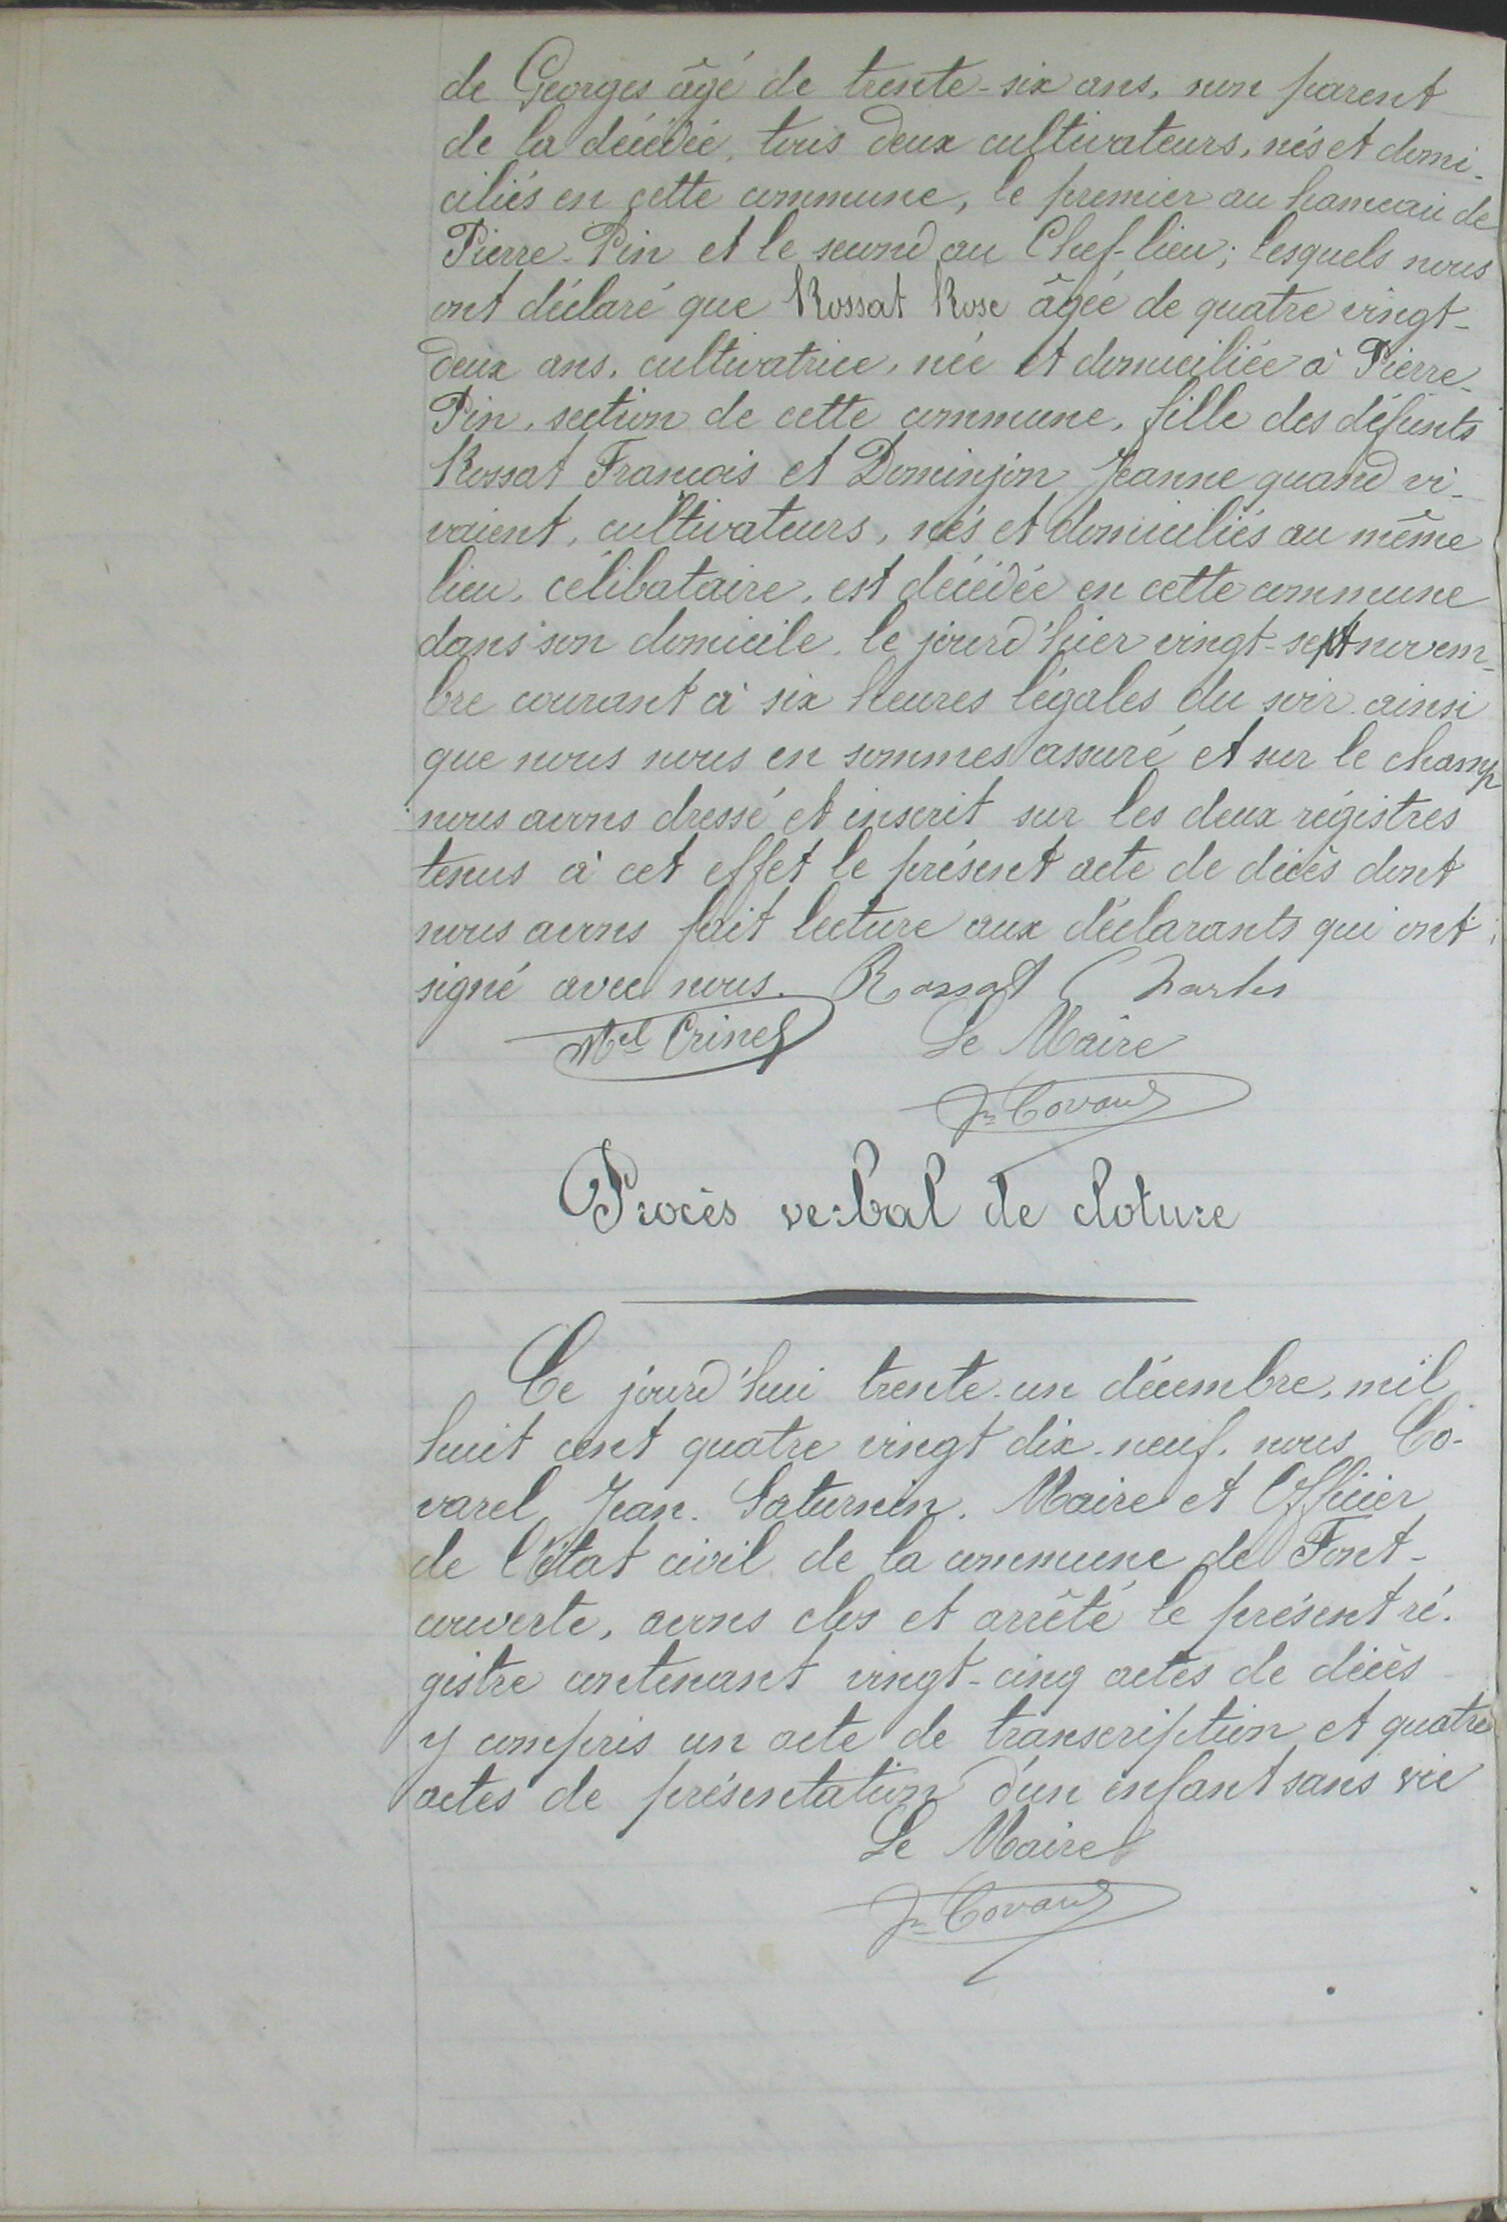 de Georges âgé de trente-six ans, non parent
de la décédée, tous deux cultivateurs, nés et domi-
ciliés en cette commune, le premier au hameau de
Pierre-Pin et le second au Chef-lieu; lesquels nous
ont déclaré que Rossat Rose âgée de quatre vingt-
deux ans, cultivatrice, née et domiciliée à Pierre-
Pin, section de cette commune, fille des défunts
Rossat François et Dominjon Jeanne quand vi-
vaient, cultivateurs, nés et domiciliés au même
lieu, célibataire, est décédée en cette commune
dans son domicile, le jourd'hier vingt-sept novem-
bre courant à six heures légales du soir ainsi
que nous nous en sommes assuré et sur le champ
nous avons dressé et inscrit sur les deux régistres
tenus à cet effet le présent acte de décès dont
nous avons fait lecture aux déclarants qui ont
signé avec nous. Rossat Charles
Mel Crinel Le Maire
Jn Covarel
Procès verbal de cloture
Ce jourd'hui trente-un décembre, mil
huit cent quatre vingt dix-neuf, nous Co-
varel Jean-Saturnin, Maire et Officier
de l'état civil de la commune de Font-
couverte, avons clos et arrêté le présent ré-
gistre contenant vingt-cinq actes de décès
y compris un acte de transcription et quatre
actes de présentation d'un enfant sans vie
Le Maire
Jn Covarel